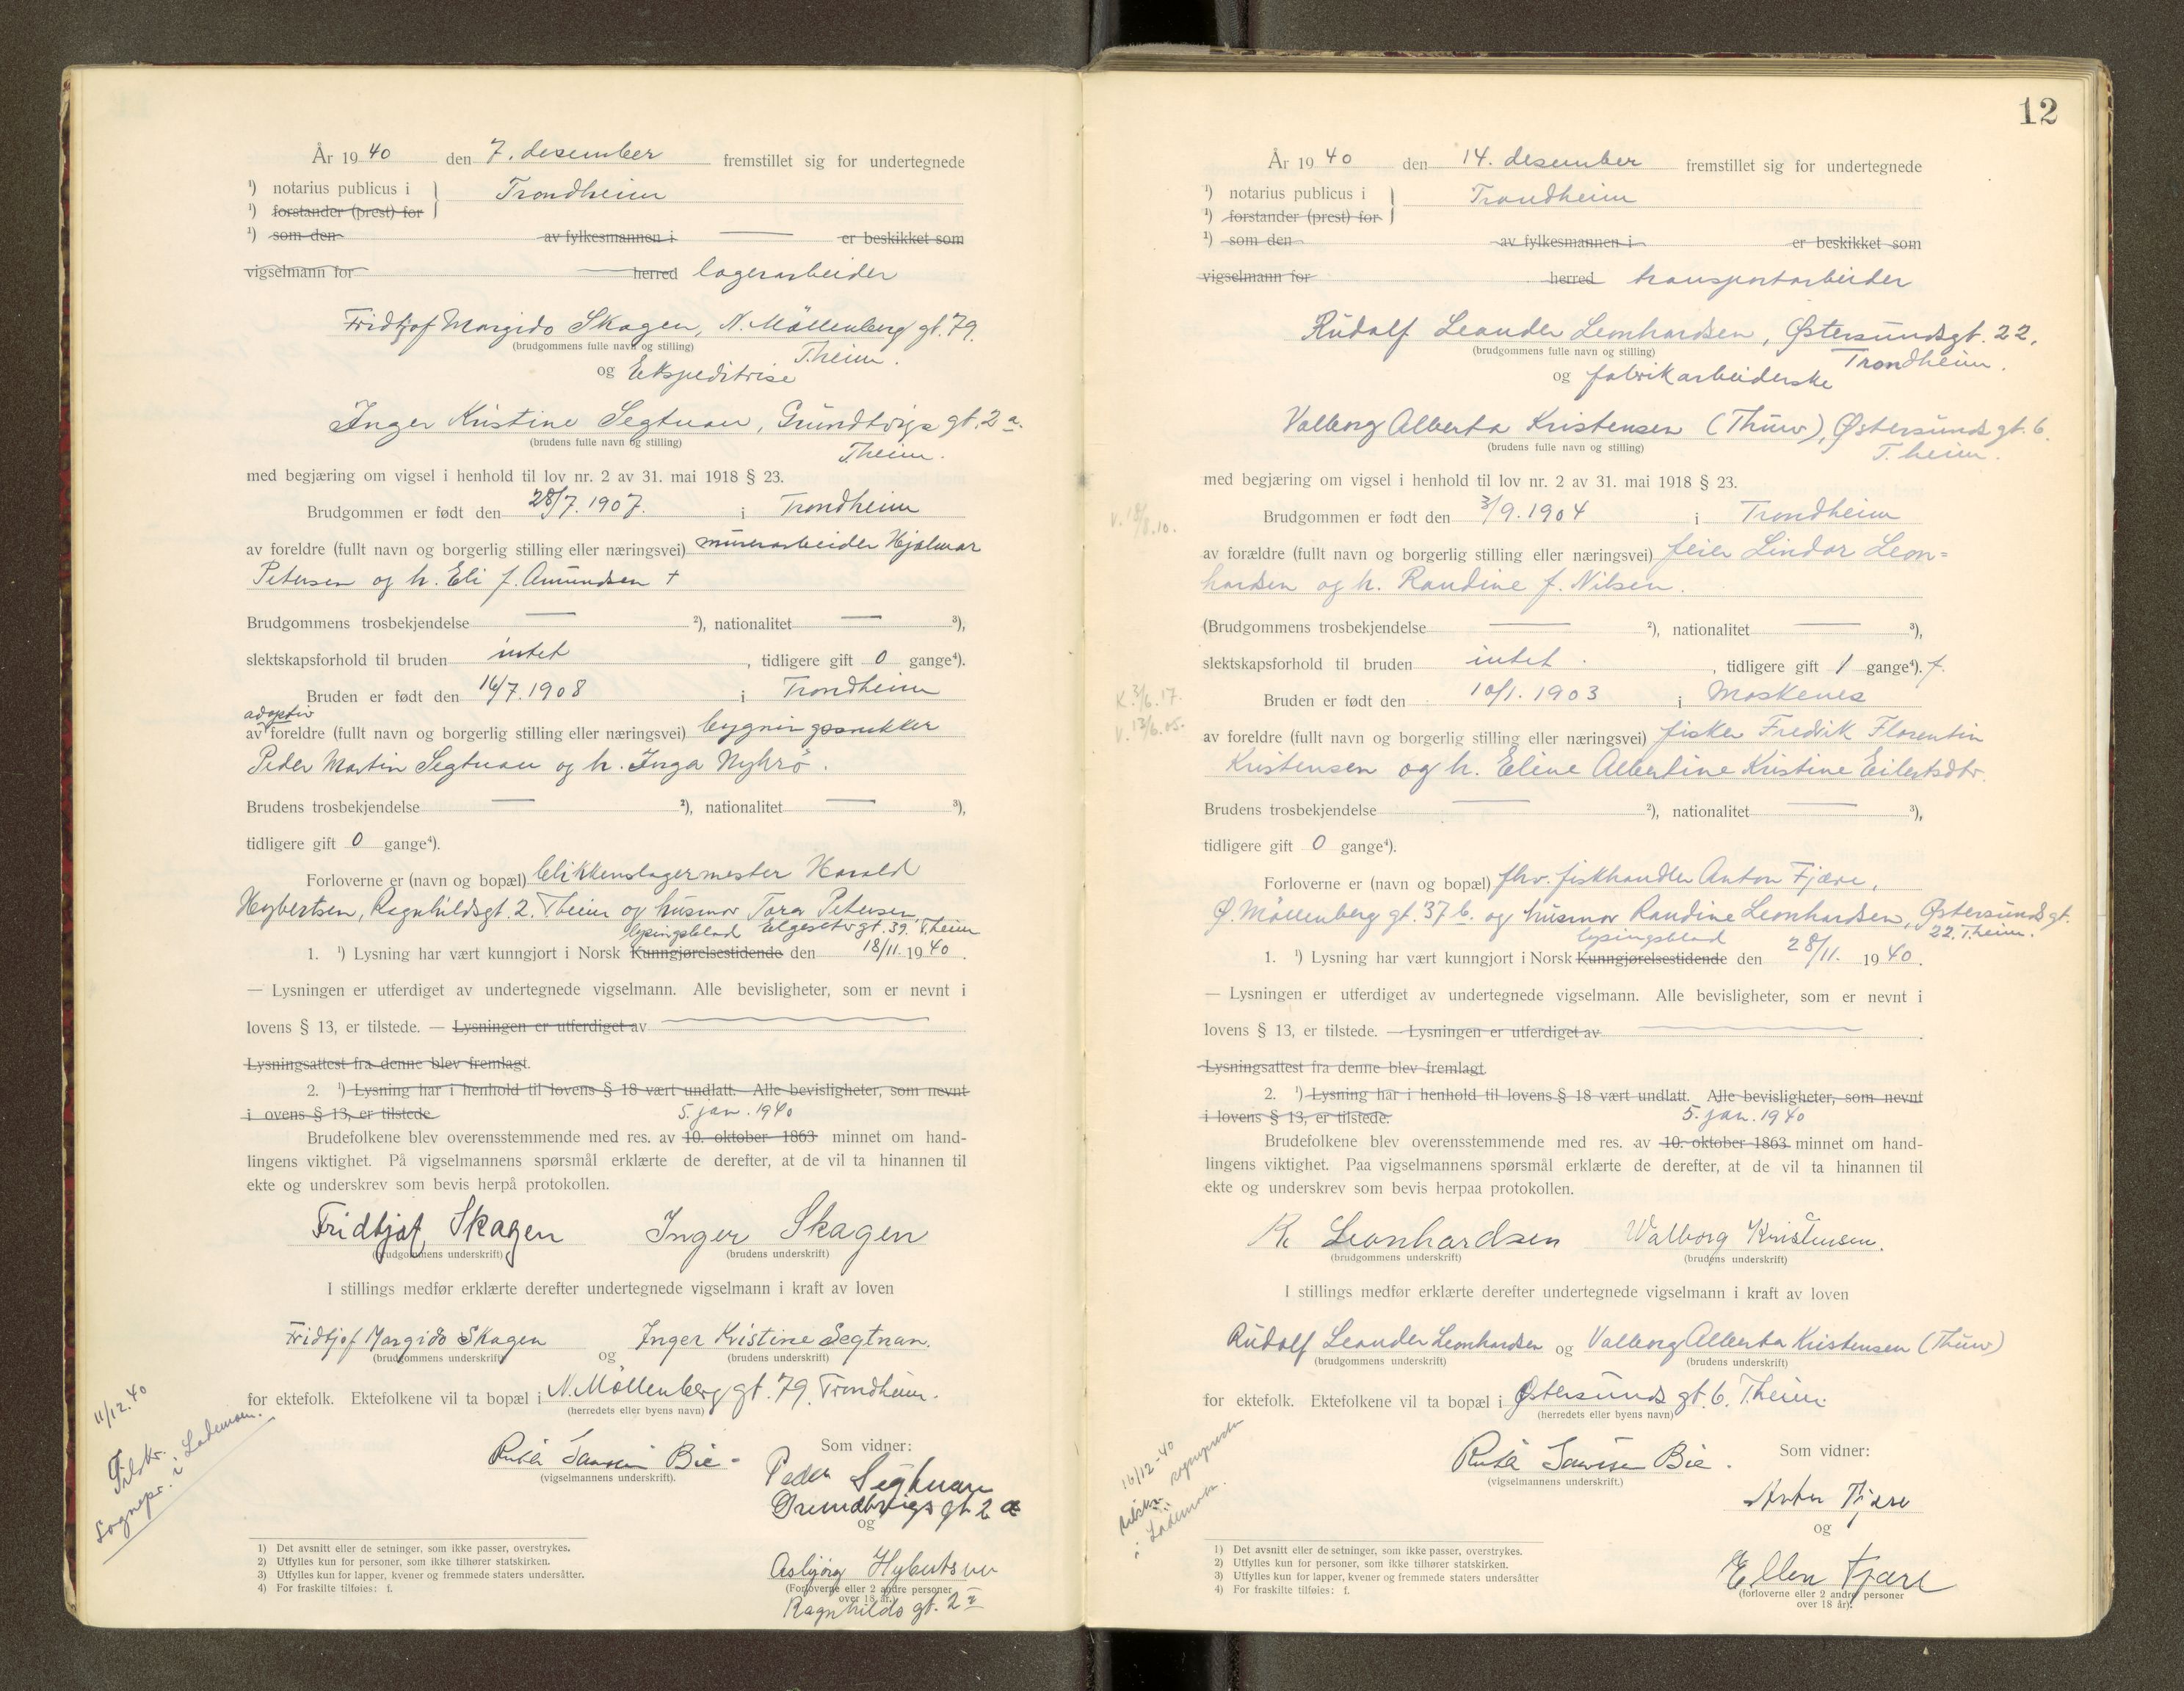 År 1940 den 7. desember fremstillet sig for undertegnede
¹) notarius publicus i } Trondheim
¹) forstander (prest) for
¹) som den av fylkesmannen i er beskikket som
vigselmann for herred lagerarbeider
Fridtjof Margido Skagen, N. Möllenberg gt. 79.
(brudgommens fulle navn og stilling) T.heim.
og Ekspeditrise
Inger Kristine Segtnan, Gründtvigs gt. 2 a.
(brudens fulle navn og stilling) T.heim.
med begjæring om vigsel i henhold til lov nr. 2 av 31. mai 1918 § 23.
Brudgommen er født den 28/7. 1907. i Trondheim
av foreldre (fullt navn og borgerlig stilling eller næringsvei) murerarbeider Hjalmar
Petersen og h. Eli f. Amundsen +
Brudgommens trosbekjendelse — ²), nationalitet — ³),
slektskapsforhold til bruden intet, tidligere gift 0 gange⁴).
Bruden er født den 16/7. 1908 i Trondheim
adoptiv
av foreldre (fullt navn og borgerlig stilling eller næringsvei) bygningssnekker
Peder Martin Segtnan og h. Inga Nyhrö.
Brudens trosbekjendelse — ²), nationalitet — ³),
tidligere gift 0 gange⁴).
Forloverne er (navn og bopæl) blikkenslagermester Harald
Hybertsen, Ragnhildsgt. 2. T.heim og husmor Tora Petersen,
lysingsblad Elgesetergt. 39. T.heim
1. ¹) Lysning har vært kunngjort i Norsk Kunngjørelsestidende den 18/11. 1940.
— Lysningen er utferdiget av undertegnede vigselmann. Alle bevisligheter, som er nevnt i
lovens § 13, er tilstede. — Lysningen er utferdiget av
Lysningsattest fra denne blev fremlagt.
2. ¹) Lysning har i henhold til lovens § 18 vært undlatt. Alle bevisligheter, som nevnt
i ovens § 13, er tilstede 5. jan. 1940
Brudefolkene blev overensstemmende med res. av 10. oktober 1863 minnet om hand-
lingens viktighet. På vigselmannens spørsmål erklærte de derefter, at de vil ta hinannen til
ekte og underskrev som bevis herpå protokollen.
Fridtjof Skagen Inger Skagen
(brudgommens underskrift) (brudens underskrift)
I stillings medfør erklærte derefter undertegnede vigselmann i kraft av loven
Fridtjof Margido Skagen og Inger Kristine Segtnan.
(brudgommens underskrift) (brudens underskrift)
for ektefolk. Ektefolkene vil ta bopæl i N. Möllenberg gt. 79. Trondheim.
(herredets eller byens navn)
11/12.40
Tilskr.
Sognepr. i Lademoen.
Som vidner:
(vigselmannens underskrift).
Peder Segtnan
Grundtvigs gt 2 a
og
Asbjørg Hybertsen
(Forloverne eller 2 andre personer
over 18 år.)
Ragnhilds gt. 2
1) Det avsnitt eller de setninger, som ikke passer, overstrykes.
2) Utfylles kun for personer, som ikke tilhører statskirken.
3) Utfylles kun for lapper, kvener og fremmede staters undersåtter.
4) For fraskilte tilføies: f.
12
År 1940 den 14. desember fremstillet sig for undertegnede
¹) notarius publicus i } Trondheim
¹) forstander (prest) for
¹) som den av fylkesmannen i er beskikket som
vigselmann for herred transportarbeider
Rudolf Leander Leonhardsen, Østersundsgt. 22,
(brudgommens fulle navn og stilling) Trondheim.
og fabrikarbeiderske
Valborg Alberta Kristensen (Thuv), Østersunds gt. 6.
(brudens fulle navn og stilling) T.heim.
med begjæring om vigsel i henhold til lov nr. 2 av 31. mai 1918 § 23.
Brudgommen er født den 3/9. 1904 i Trondheim
av forældre (fullt navn og borgerlig stilling eller næringsvei) feier Lindor Leon=
hardsen og h. Randine f. Nilsen.
(Brudgommens trosbekjendelse — ²), nationalitet — ³),
slektskapsforhold til bruden intet., tidligere gift 1 gange⁴). f.
K. 3/6. 17.
V. 13/6. 05.
Bruden er født den 10/1. 1903 i Moskenes
av foreldre (fullt navn og borgerlig stilling eller næringsvei) fisker Fredrik Florentin
Kristensen og h. Eline Albertine Kristine Eilertsdtr.
Brudens trosbekjendelse — ²), nationalitet — ³),
tidligere gift 0 gange⁴).
Forloverne er (navn og bopæl) fhv. fiskhandler Anton Fjære,
Ø. Möllenberg gt. 37 b. og husmor Randine Leonhardsen, Østersunds gt.
lysingsblad 22. T.heim.
1. ¹) Lysning har vært kunngjort i Norsk Kunngjørelsestidende den 28/11. 1940.
— Lysningen er utferdiget av undertegnede vigselmann. Alle bevisligheter, som er nevnt i
lovens § 13, er tilstede. — Lysningen er utferdiget av
Lysningsattest fra denne blev fremlagt
2. ¹) Lysning har i henhold til lovens § 18 vært undlatt. Alle bevisligheter, som nevnt
i lovens § 13, er tilstede. 5. jan. 1940
Brudefolkene blev overensstemmende med res. av 10. oktober 1863 minnet om hand-
lingens viktighet. Paa vigselmannens spørsmål erklærte de derefter, at de vil ta hinannen til
ekte og underskrev som bevis herpaa protokollen.
R. Leonhardsen Walborg Kristensen.
(brudgommens underskrift) (brudens underskrift)
I stillings medfør erklærte derefter undertegnede vigselmann i kraft av loven
Rudolf Leander Leonhardsen og Valborg Alberta Kristensen (Thuv)
(brudgommens underskrift) (brudens underskrift)
for ektefolk. Ektefolkene vil ta bopæl i Østersunds gt. 6. T.heim.
(herredets eller byens navn)
16/12-40
sogneprest
i Lademoen.
Som vidner:
(vigselmannens underskrift.)
Anton Fjære
og
Ellen Fjære
(forloverne eller 2 andre personer
over 18 år).
1) Det avsnitt eller de setninger, som ikke passer, overstrykes.
2) Utfylles kun for personer, som ikke tilhører statskirken.
3) Utfylles kun for lapper, kvener og fremmede staters undersåtter
4) For fraskilte tilføies: f.